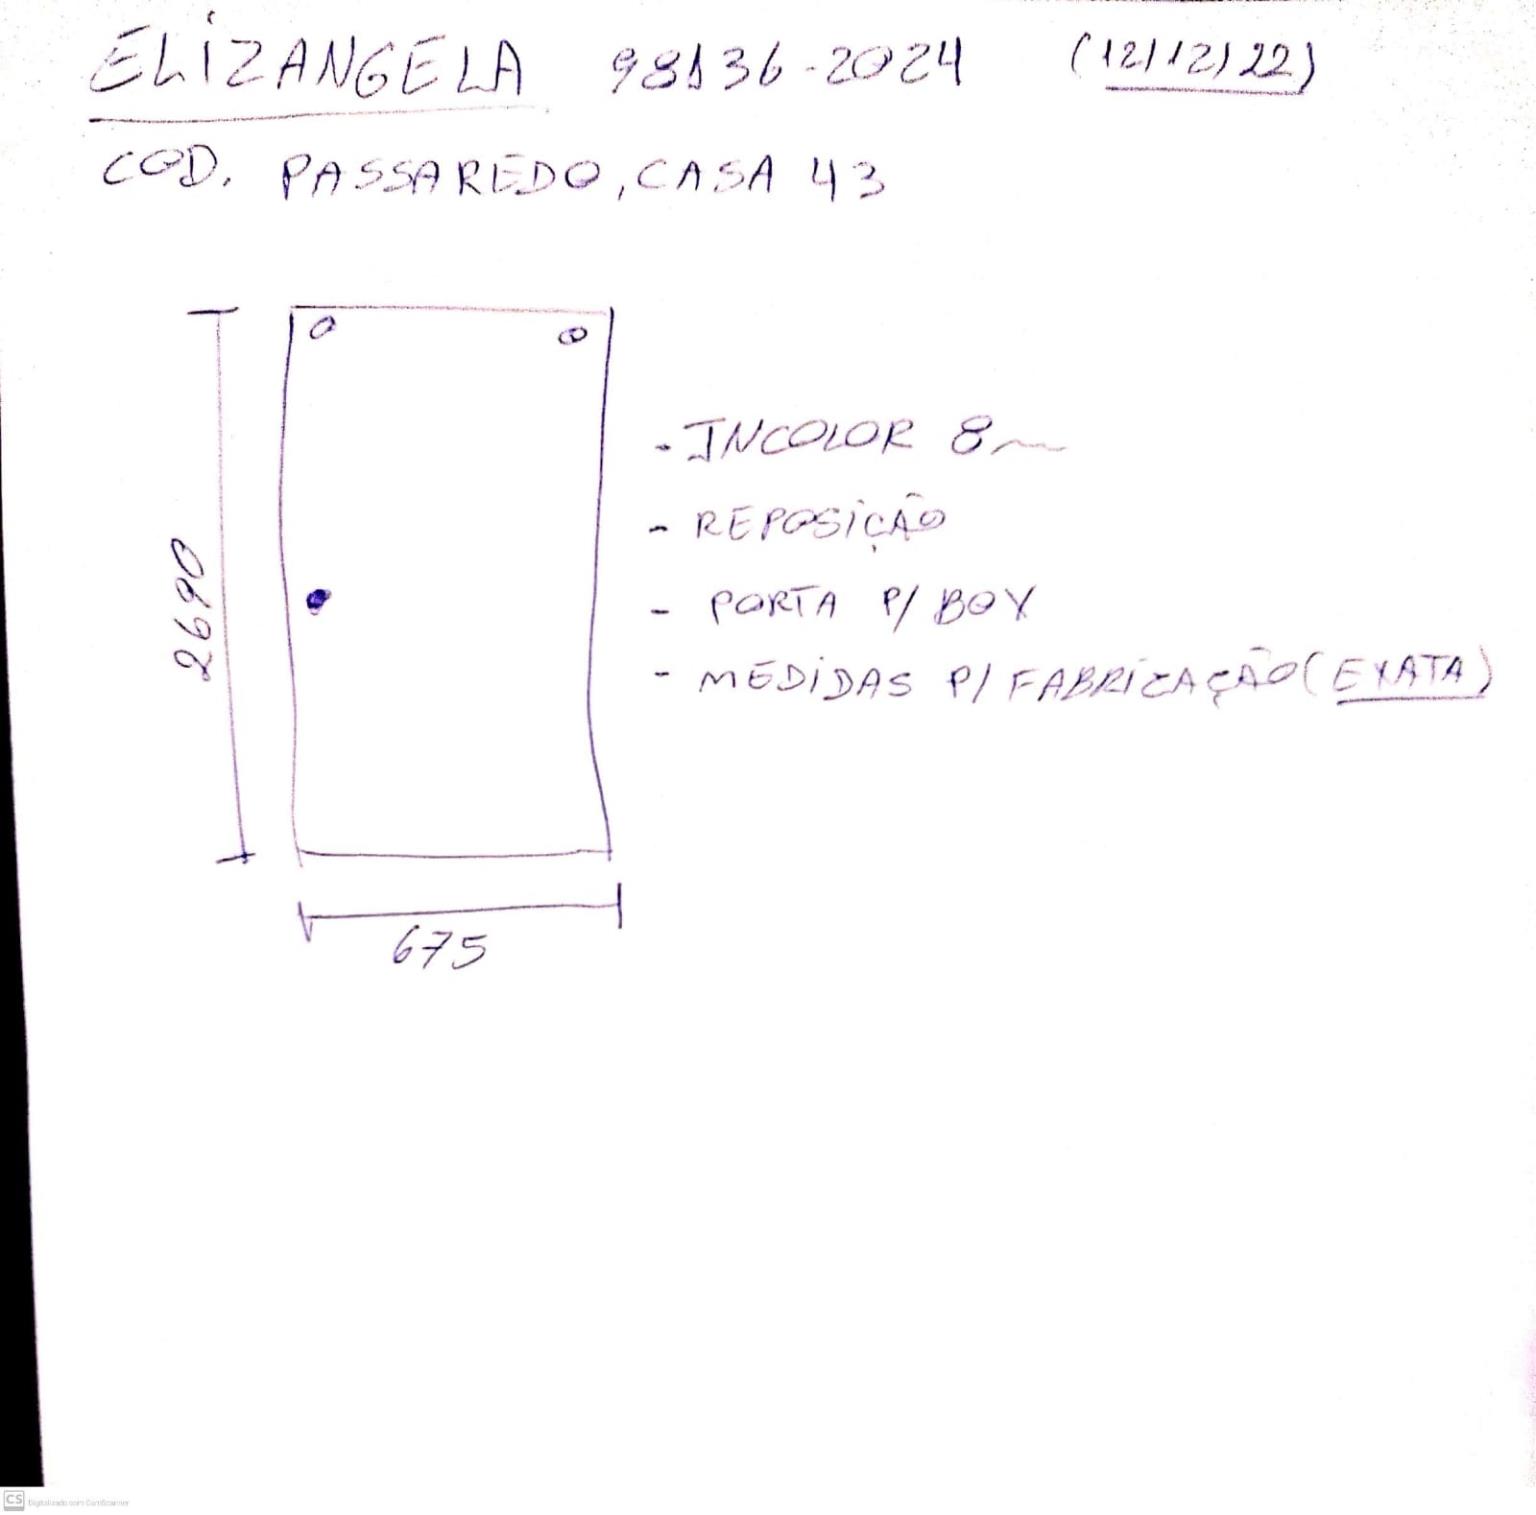 ELIZANGELA 98136-2024 (12/12/22)
COD. PASSAREDO, CASA 43
- INCOLOR 8mm
- REPOSIÇÃO
2690
- PORTA P/ BOX
- MEDIDAS P/ FABRICAÇÃO (EXATA)
675
CS Digitalizado com CamScanner